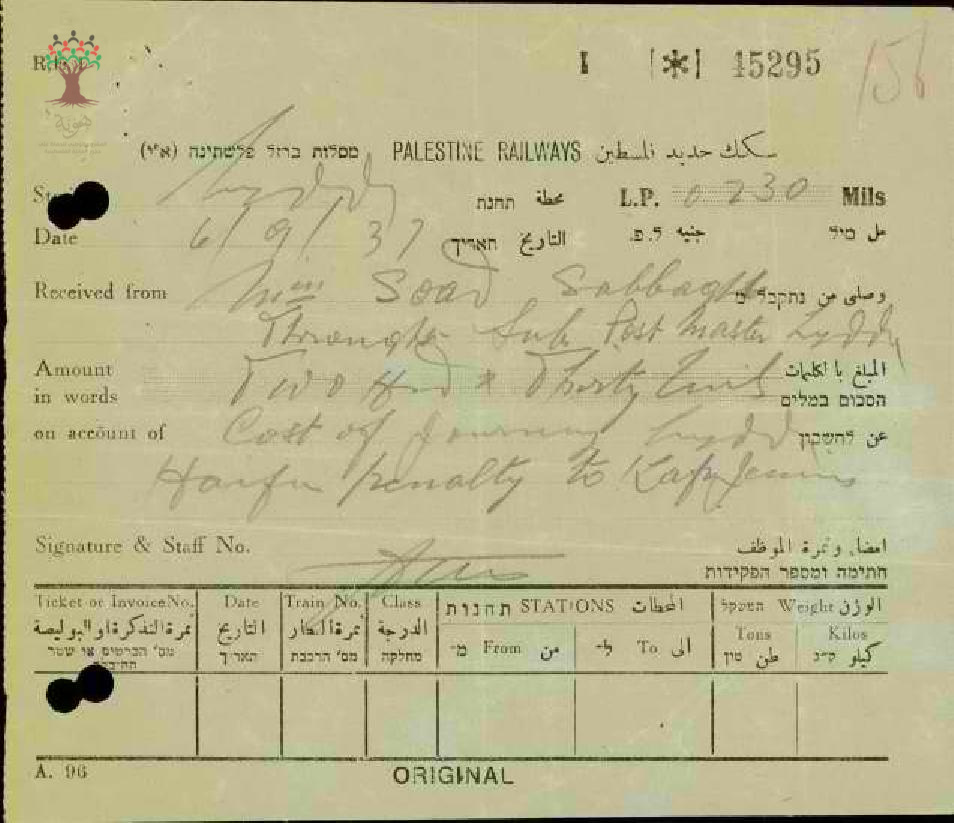 I [*] 45295
156
هوية
מסלות ברזל פלשתינה (א"י) PALESTINE RAILWAYS سكك حديد فلسطين
Lydda محطة תחנת L.P. 0 230 Mils
Date 6/9/37 التاريخ תאריך جنيه ל.פ. مل מיל
Received from Miss Soad Sabbagh وصلى من נתקבל מ
Through Sub Post Master Lydda
Amount Two Hnd & Thirty mils المبلغ بالكلمات
in words הסכום במלים
on account of Cost of Journey Lydda عن לחשבון
Haifa penalty to
Signature & Staff No. امضاء ونمرة الموظف
חתימה ומספר הפקידות
Ticket or Invoice No. Date Train No. Class תחנות STATIONS المحطات המשקל Weight الوزن
نمرة التذكرة او البوليصة التاريخ نمرة القطار الدرجة מ- From من ל- To الى Tons Kilos
מס' הכרטיס או שטר תאריך מס' הרכבת מחלקה טון طن ק"ג كيلو
A. 96 ORIGINAL